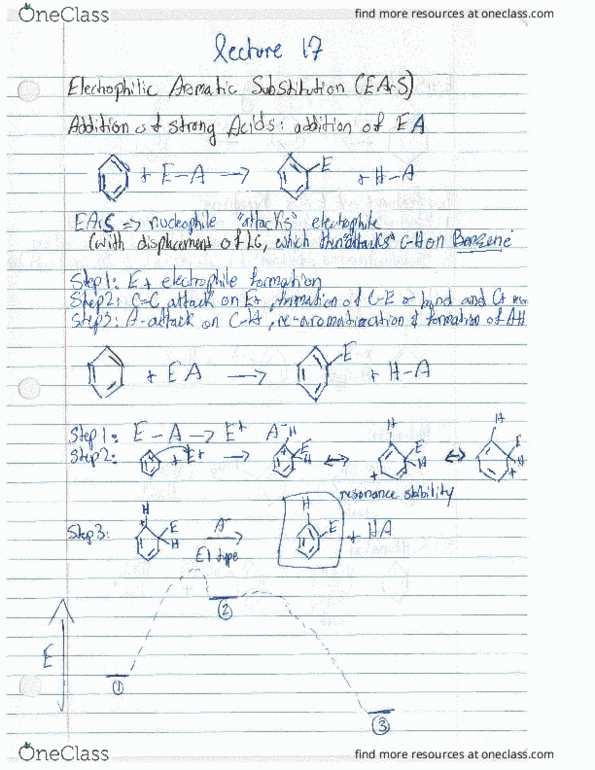 OneClass
find more resources at oneclass.com
lecture 17
Electrophilic Aromatic Substitution (EArS)
Addition of strong Acids: addition of EA
+ E-A → E + H-A
EArS => nucleophile "attacks" electrophile
(with displacement of LG, which then "attacks" C-H on Benzene
Step 1: E+ electrophile formation
Step 2: C=C attack on E+, formation of C-E σ bond and C+
Step 3: A- attack on C-H, re-aromatization & formation of AH
+ EA → E + H-A
Step 1: E-A → E+ A-
Step 2: + E+ → H E H + ↔ H E H + ↔ H E H +
resonance stability
Step 3: H E H + A- E1 type → H E + HA
E
②
①
③
OneClass
find more resources at oneclass.com